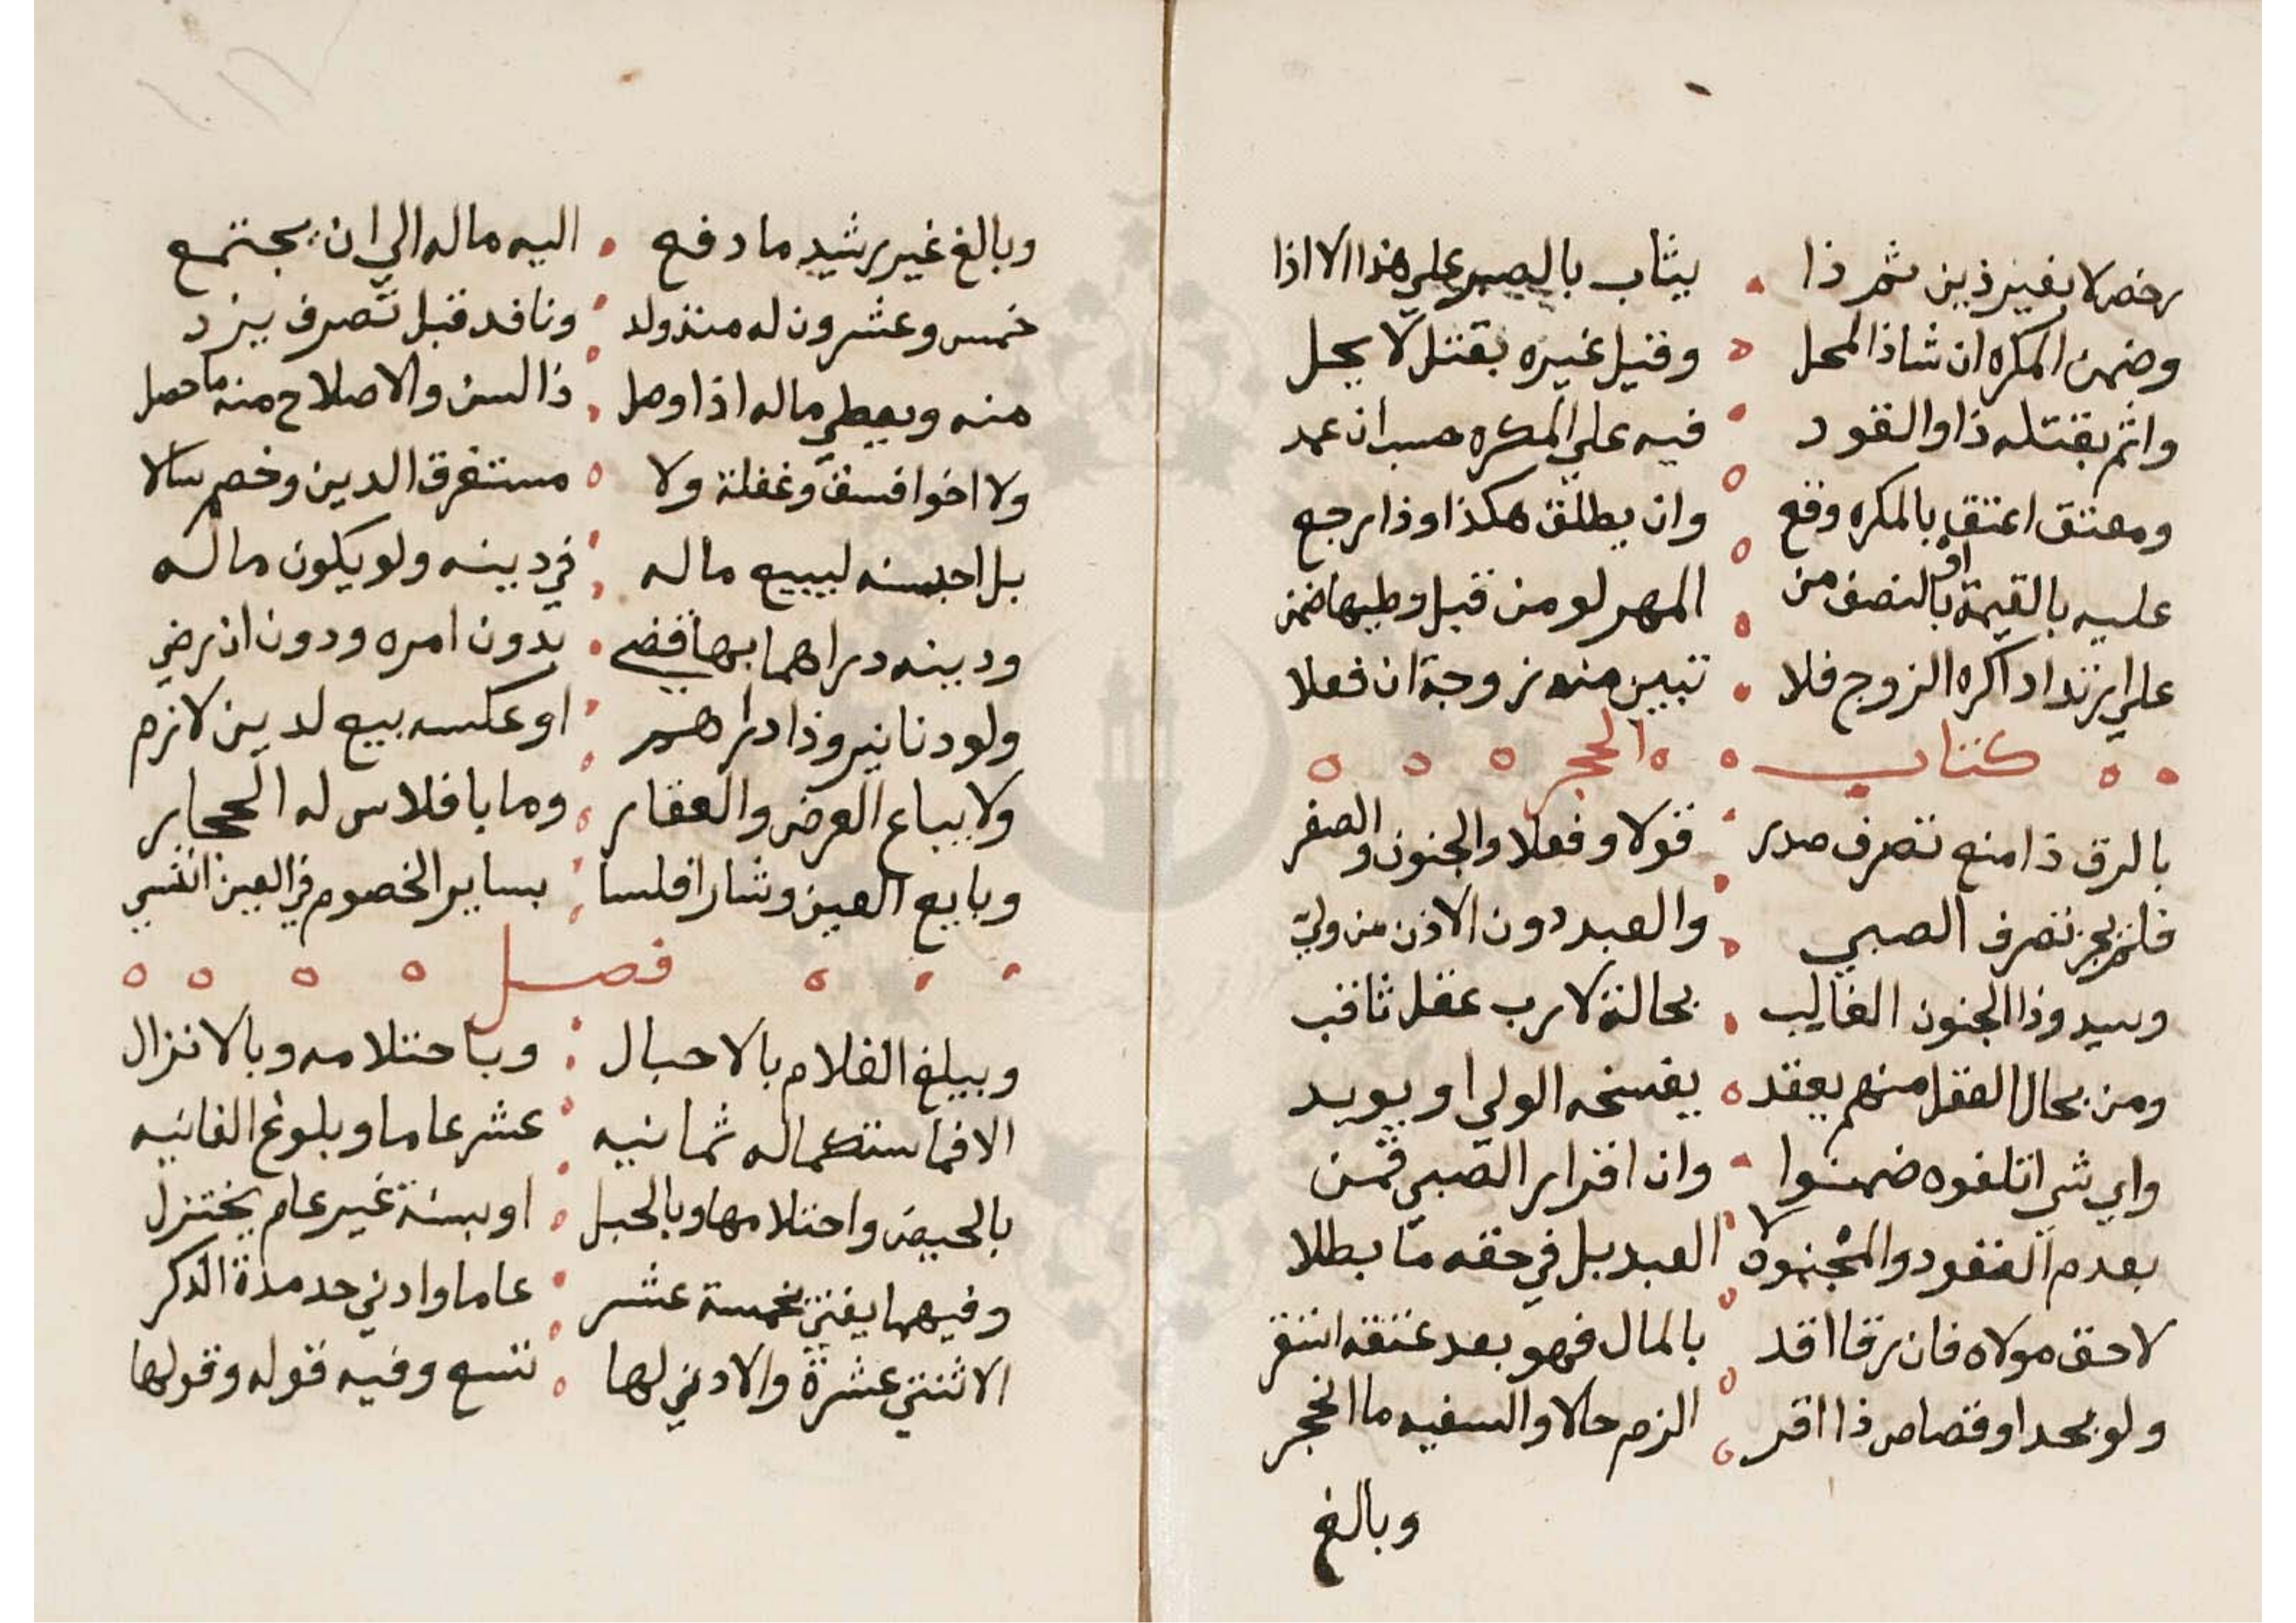 رخص لا بغير ذين ثم ذا يثاب بالصبر علي هذا الا اذا
وضمن المكره ان شا ذا المحل وقتيل غيره بقتل لا يحل
واثم بقتله ذا والقود فيه علي المكره حسب ان عمد
ومعتق اعتق بالمكره وقع وان يطلق هكذا وذا رجع
عليه بالقيمة او بالنصف من المهر لو من قبل وطيها ضمن
علي ارتداد اكره الزوج فلا تبين منه زوجة ان فعلا
كتاب الحجر
بالرق ذا منع تصرف صدر قولا وفعلا والجنون والصغر
فلم يجز تصرف الصبي والعبد دون الاذن من ولي
وسيد وذا الجنون الغالب بحالة لا رب عقل ثاقب
ومن بحال العقل منهم يعقد يفسخه الولي او يويد
واي شي اتلفوه ضمنوا وان اقرار الصبي قمن
بعدم النفود والمجنون لا العبد بل في حقه ما بطلا
لا حق مولاه فان رقا اقد بالمال فهو بعد عتقه استقر
ولو بحد او قصاص ذا اقر الزم حالا والسفيه ما انحجر
وبالغ
وبالغ غير رشيد ما دفع اليه ماله الي ان يجتمع
خمس وعشرون له منذ ولد ونافد قبل تصرف يرد
منه ويعطي ماله اذا وصل ذا السن والاصلاح منه ما حصل
ولا اخوا فسق وغفلة ولا مستغرق الدين وخصم سالا
بل احبسنه ليبيع ماله في دينه ولو يكون ماله
ودينه دراهما بها قضي بدون امره ودون ان رضي
ولو دنانير وذا دراهم او عكسه بيع لدين لازم
ولا يباع العرض والعقار وما بافلاس له انحجار
وبايع العين وشار افلسا بساير الخصوم في العين ائتسي
فصل
ويبلغ الغلام بالاحبال وباحتلامه وبالانزال
الا فباستكماله ثمانيه عشر عاما وبلوغ الغانيه
بالحيض واحتلامها وبالحبل او بسنة غير عام يختزل
وفيهما يفتي بخمسة عشر عاما وادني حد مدة الذكر
الاثنتي عشرة والادني لها تسع وفيه قوله وقولها